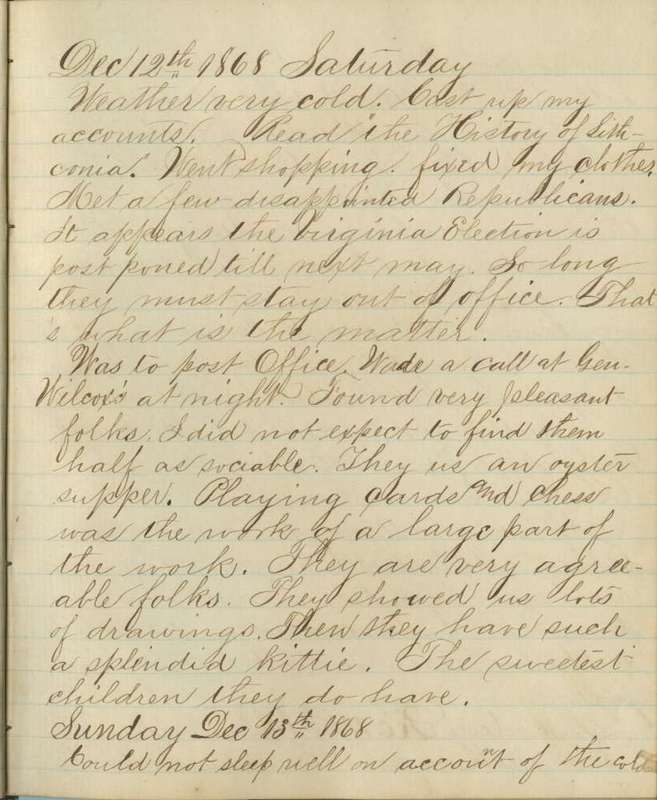 Dec 12th 1868 Saturday
Weather very cold. Cast up my
accounts. Read "the History of Lith-
conia." Went shopping. fixed my clothes.
Met a few disappointed Republicans.
It appears the Virginia Election is
post poned till next may. So long
they must stay out of office. That
's what is the matter.
Was to post Office. Made a call at Gen-
Wilcox's at night. Found very pleasant
folks. I did not expect to find them
half as sociable. They us an oyster
supper. Playing cards and chess
was the work of a large part of
the work. They are very agree-
able folks. They showed us lots
of drawings. Then they have such
a splendid kittie. The sweetest
children they do have.
Sunday Dec 13th 1868
Could not sleep well on account of the cold